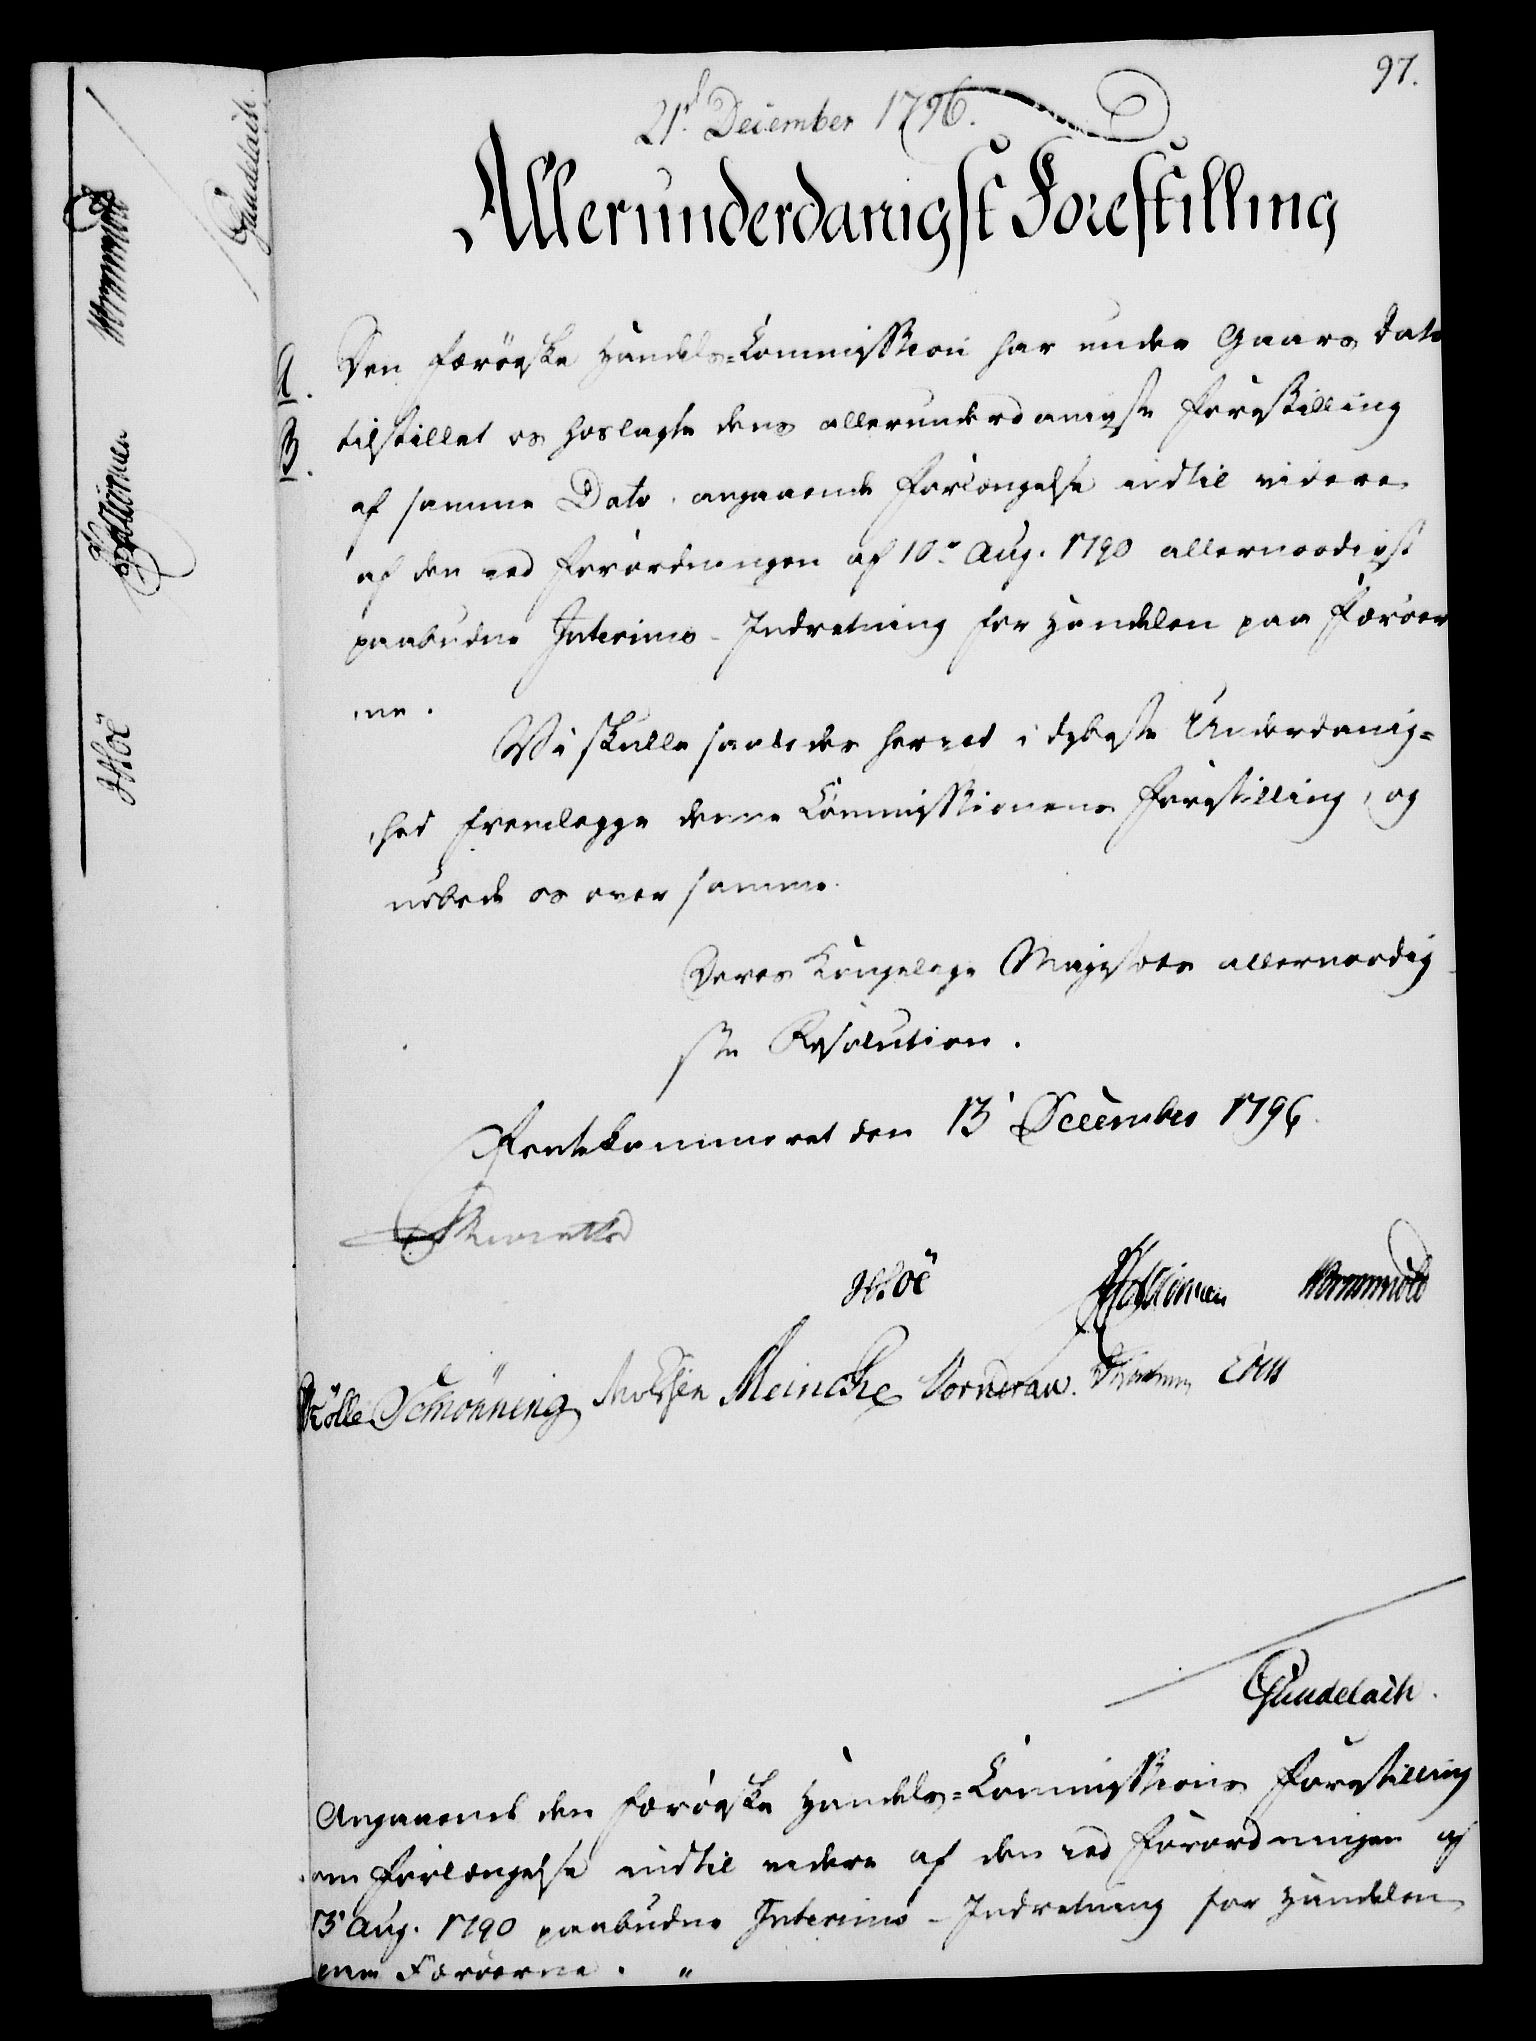 97.
21d December 1796.
Allerunderdanigst Forestilling
A. Den Færöeske Handels-Commission har under Gaars Dato
B. tilstillet os hoslagte dens allerunderdanigste Forestilling
af samme Dato, angaaende Forlængelse indtil videre
af den ved Forordningen af 10de Aug. 1790 allernaadigst
paabudne Interims-Indretning for Handelen paa Færöer
ne.
Vi skulle saaledes herved i dybeste Underdanig-
hed fremlægge denne Commissionens Forestilling, og
udbede os over samme
Deres Kongelige Majestæts allernaadig
ste Resolution.
Rentekammeret den 13 December 1796.
Reventlow
Höe Wormskiold
Rölle Schönning Meincke Vornerau.
Gundelach.
Angaaende den Færöeske Handels-Commissions Forestilling
om Forlængelse indtil videre af den ved Forordningen af
13 Aug. 1790 paabudne Interims-Indretning for Handelen
paa Færöerne.
Gundelach.
Wormskiold
Höe